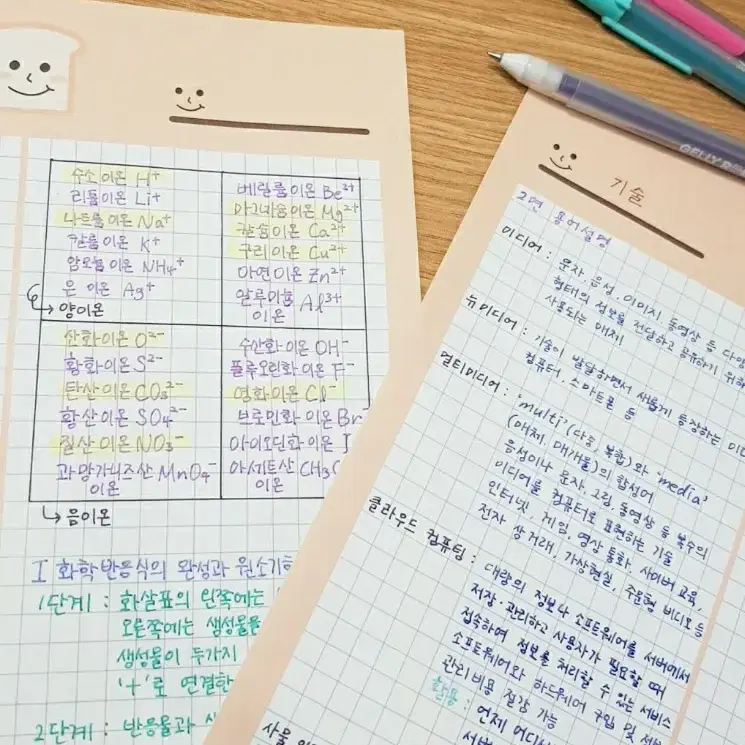 수소 이온 H⁺
리튬 이온 Li⁺
나트륨 이온 Na⁺
칼륨 이온 K⁺
암모늄 이온 NH₄⁺
은 이온 Ag⁺
↳ 양이온
베릴륨 이온 Be²⁺
마그네슘 이온 Mg²⁺
칼슘 이온 Ca²⁺
구리 이온 Cu²⁺
아연 이온 Zn²⁺
알루미늄 Al³⁺
이온
산화 이온 O²⁻
황화 이온 S²⁻
탄산 이온 CO₃²⁻
황산 이온 SO₄²⁻
질산 이온 NO₃⁻
과망가니즈산 MnO₄⁻
이온
↳ 음이온
수산화 이온 OH⁻
플루오린화 이온 F⁻
염화 이온 Cl⁻
브로민화 이온 Br⁻
아이오딘화 이온 I
아세트산 CH₃
이온
I 화학 반응식의 완성과 원소기
1단계 : 화살표의 왼쪽에는
오른쪽에는 생성물을
생성물이 두가지
'+'로 연결한
2단계 : 반응물과
기술
2면 용어설명
미디어 : 문자, 음성, 이미지, 동영상 등 다양
형태의 정보를 전달하고 공유하기 위해
사용되는 매체
뉴미디어 : 기술이 발달하면서 새롭게 등장하는 미디
컴퓨터, 스마트폰 등
멀티미디어 : 'multi'(다중, 복합)와 'media'
(매체, 매개물)의 합성어
음성이나 문자, 그림, 동영상 등 복수의
미디어를 컴퓨터로 표현하는 기술
인터넷, 게임, 영상 통화, 사이버 교육,
전자 상거래, 가상현실, 주문형 비디오 등
클라우드 컴퓨팅 : 대량의 정보나 소프트웨어를 서버에서
저장·관리하고 사용자가 필요할 때
접속하여 정보를 처리할 수 있는 서비스
소프트웨어와 하드웨어 구입 및
관리비용 절감 가능
활용 : 언제 어디
서버
사물
GELLY RO